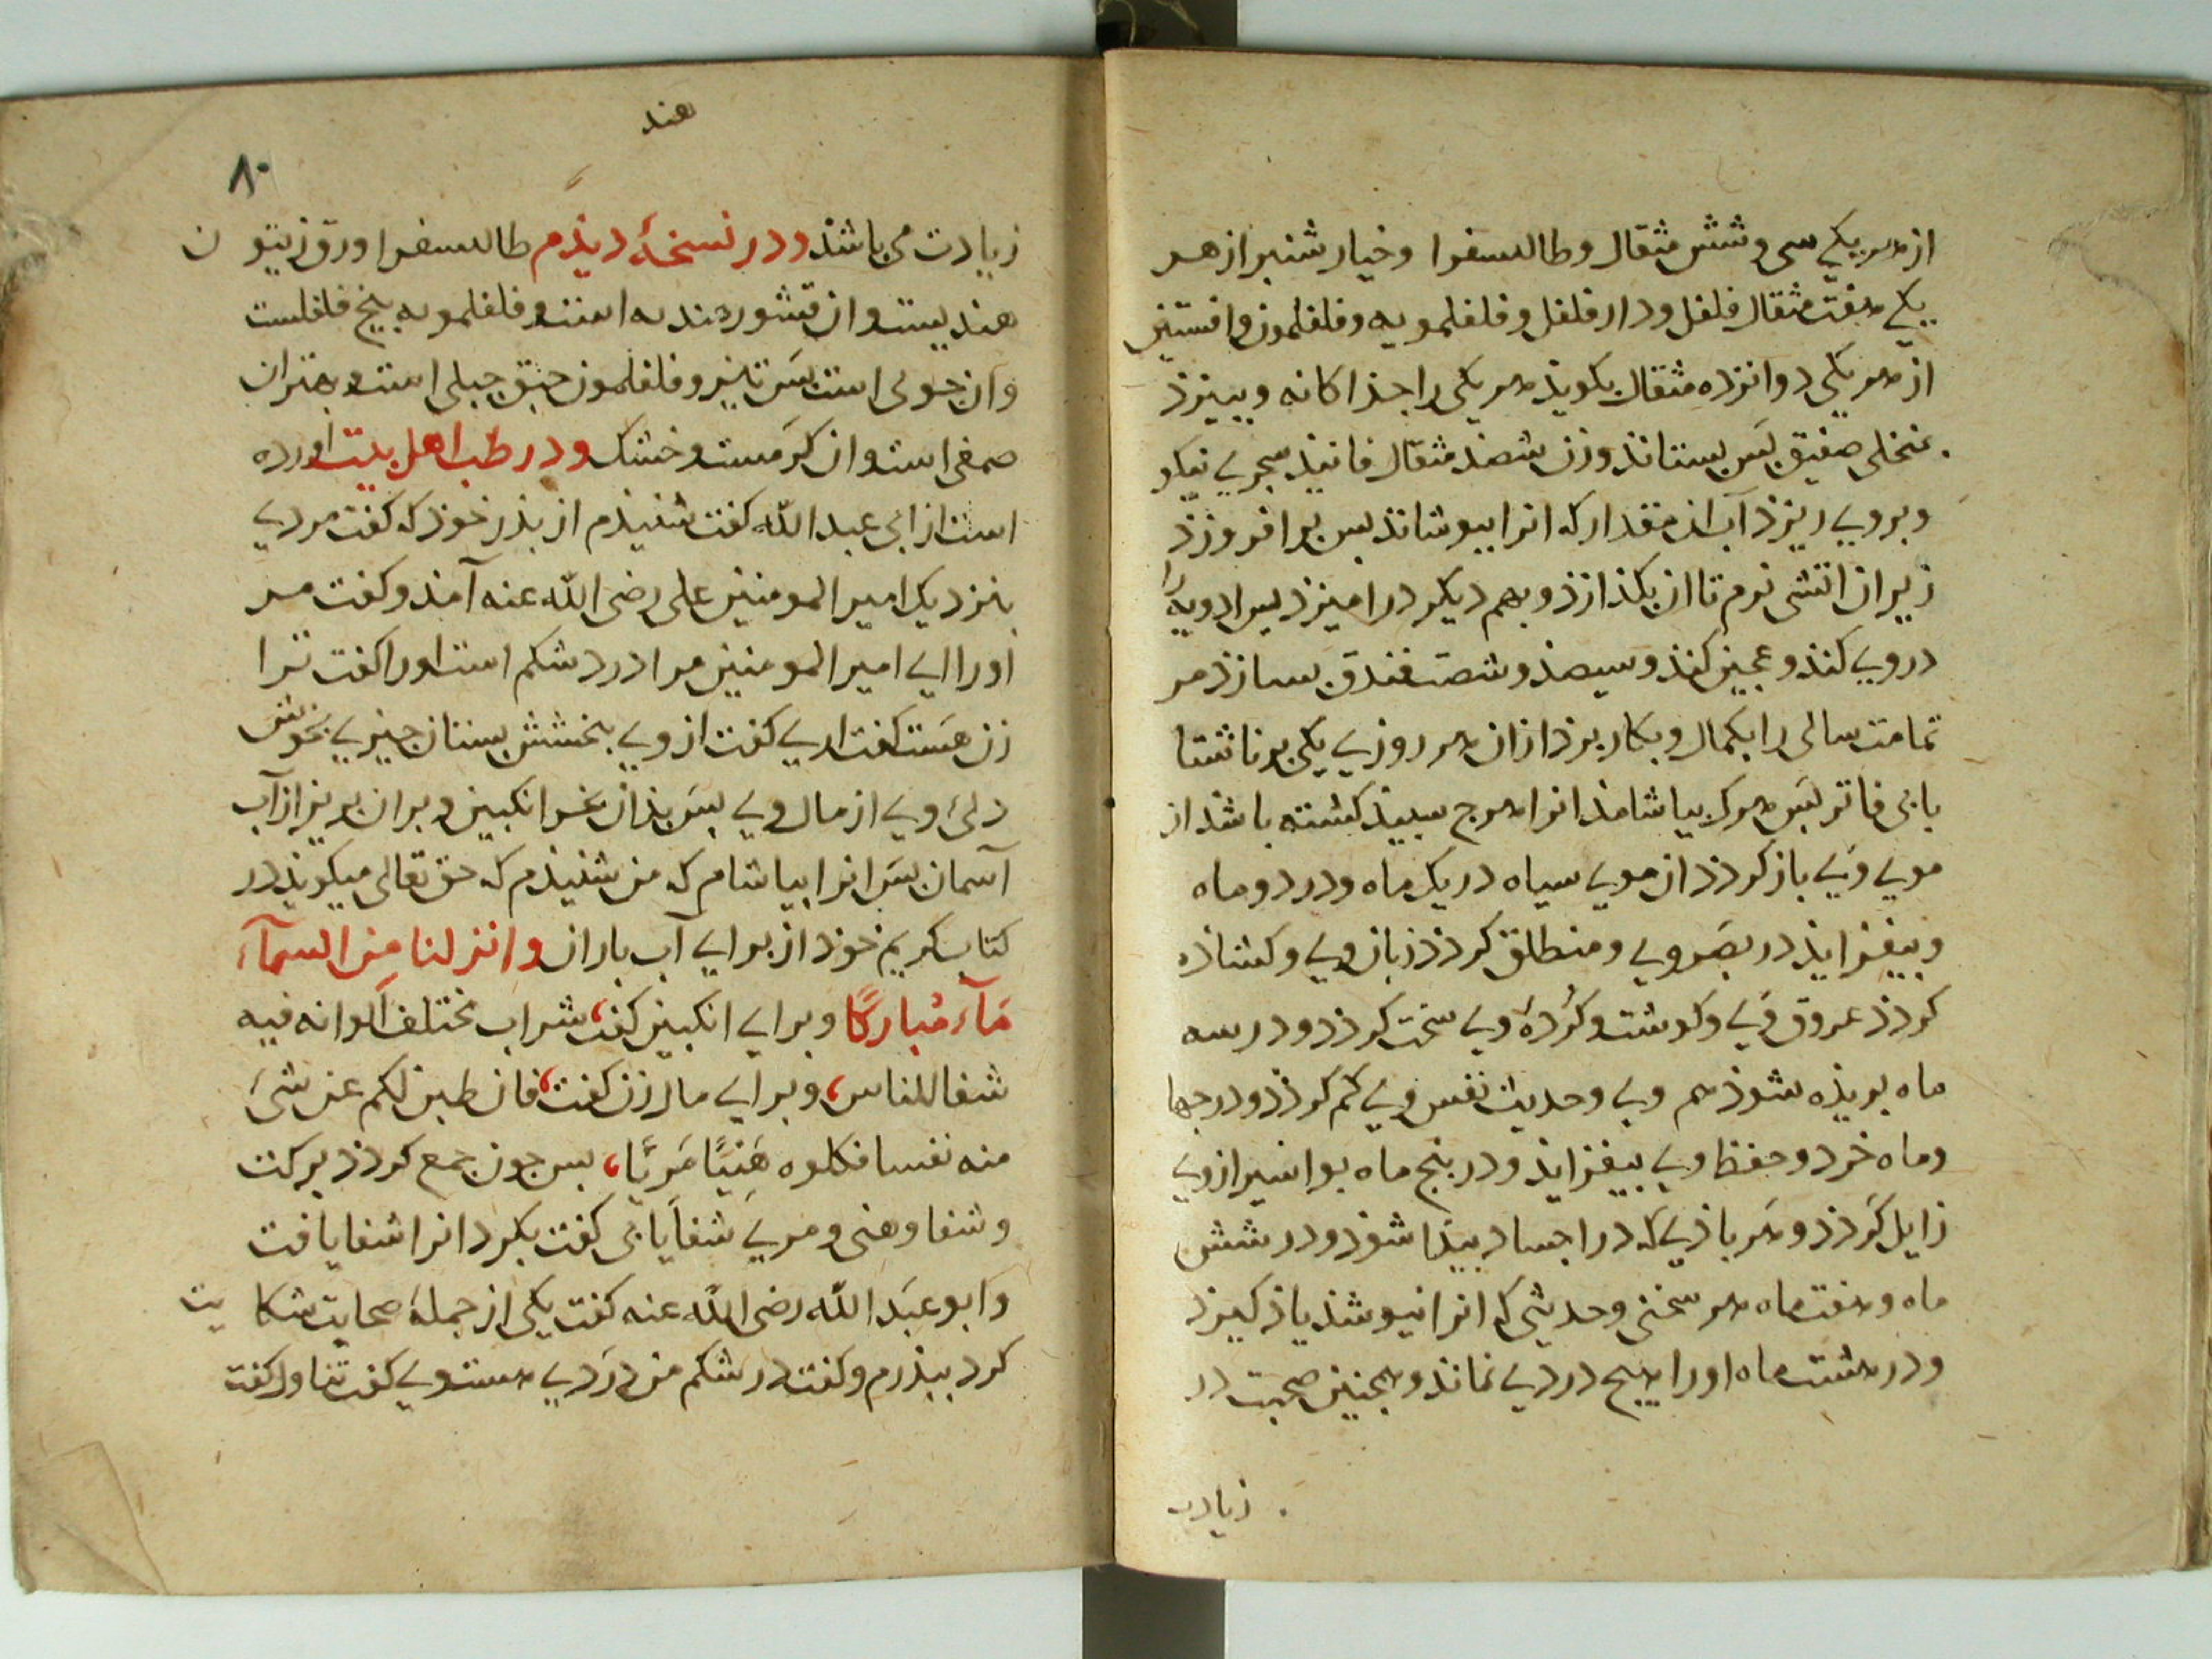 از هر یکی سی و شش مثقال و طالسفرا و خیار شنبر از هر
یکی هفت مثقال فلفل و دار فلفل و فلفلمویه و فلفلمون و افستین
از هر یکی دوانزده مثقال بکویذ هر یکی را جذاکانه و ببیزذ
بمنخلی صفیق بس بستانذ وزن شصذ مثقال فانیذ سجزی نیکو
و بروی ریزذ آب انمقدار که انرا بپوشانذ بس برافروزذ
زیر ان اتشی نرم تا ان بکذازذ و بهم دیکر درامیزذ بس ادویه را
در وی کنذ و عجین کنذ و سیصذ و شصت فندق بسازذ مر
تمامت سالی را بکمال و بکار برذ ازان هر روزی یکی بر ناشتا
بابی فاتر بس هرکه بیاشامذ انرا هرج سبیذ کشته باشذ از
موی وی باز کردذ ان موی سیاه در یک ماه و در دو ماه
و بیفزایذ در بصر وی و منطلق کردذ زبان وی و کشاذه
کردذ عروق وی و کوشت و کرده وی سخت کردذ و در سه
ماه بریذه شوذ هم وی و حدیث نفس وی کم کردذ و در جها
وماه خرد و حفظ وی بیفزایذ و در بنج ماه بواسیر از وی
زایل کردذ و هر باذی که در اجساد بیذا شوذ و در شش
ماه و هفت ماه هر سخنی و حدیثی که انرا نیوشذ یاذ کیرذ
و در هشت ماه اورا هیج دردی نماند و همجنین صحبت در
زیادت
هند
۸۰
زیادت می باشذ و در نسخهٔ دیذم طالسفرا ورق زیتون
هندیست و ان قشور هندبه است و فلفلمویه بیخ فلفلست
و ان جولی است بس تیز و فلفلمون حبق جبلی است و بهتر ان
صمغی است و ان کرمست و خشک و در طب اهل بیت اورده
است از ابی عبدالله کفت شنیذم از بذر خوذ که کفت مردی
بنزدیک امیرالمومنین علی رضی الله عنه آمذ و کفت مر
اورا ای امیرالمومنین مرا درد شکم است اورا کفت ترا
زن هست کفت اری کفت از وی ببخشش بستان جیزی بخوش
دلئ وی از مال وی بس بذان بخر انکبین و بر ان بریز از آب
آسمان بس انرا بیاشام که من شنیذم که حق تعالی میکویذ در
کتاب کریم خوذ از برای آب باران و انزلنا من السماء
ماء مبارکًا و برای انکبین کفت شراب مختلف الوانه فیه
شفا للناس، و برای مال زن کفت فان طبن لکم عن شیء
منه نفسا فکلوه هنیئًا مریًا، بس جون جمع کردذ برکت
و شفا و هنی و مری شفا یابی کفت بکرد انرا شفا یافت
و ابو عبدالله رضی الله عنه کفت یکی از جمله صحابت شکایت
کرد ببذرم و کفت در شکم من دردی هست وی کفت تناول کفت